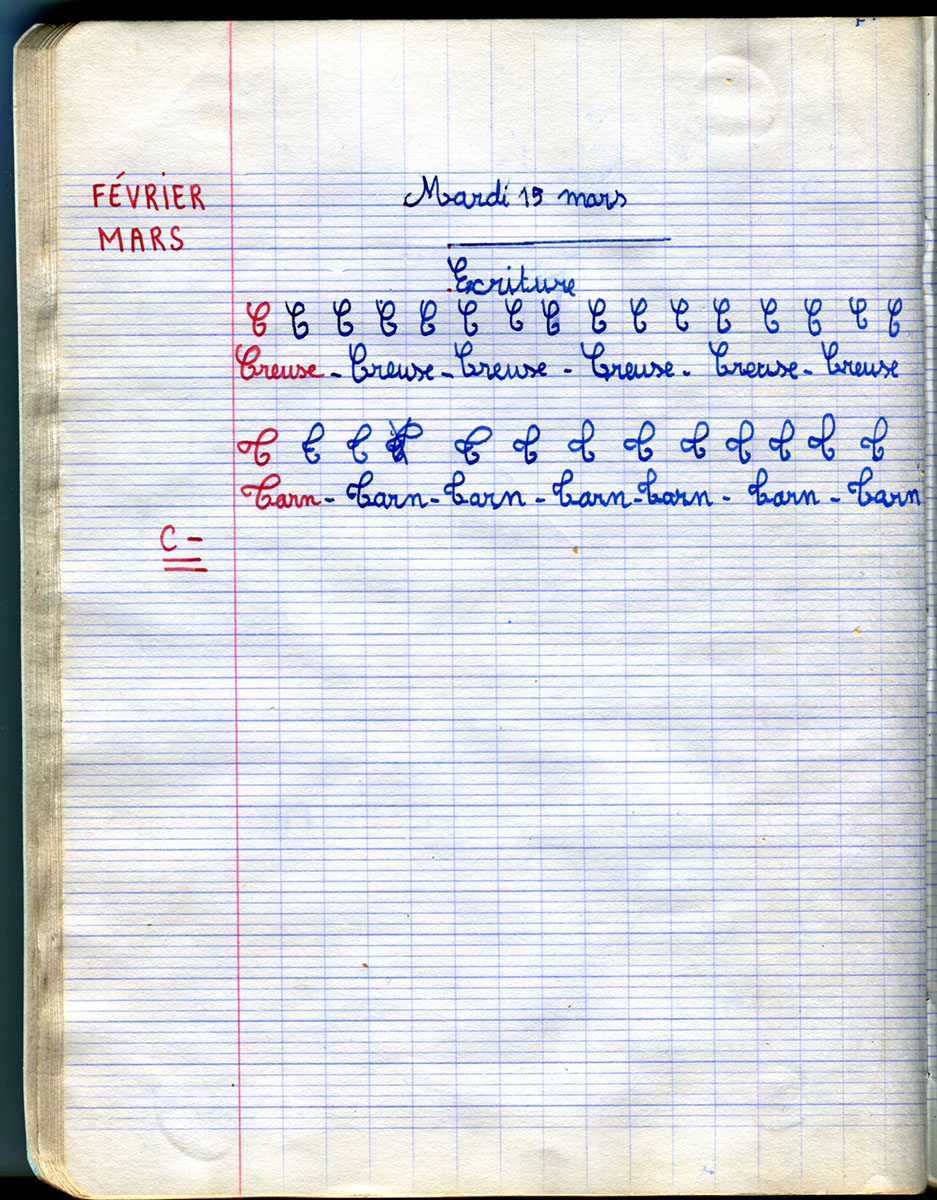 FÉVRIER
MARS
Mardi 15 mars
Ecriture
C C C C C C C C C C C C C C C C
Creuse - Creuse - Creuse - Creuse - Creuse - Creuse
T T T T T T T T T T T T
Tarn - Tarn - Tarn - Tarn - Tarn - Tarn - Tarn
C -